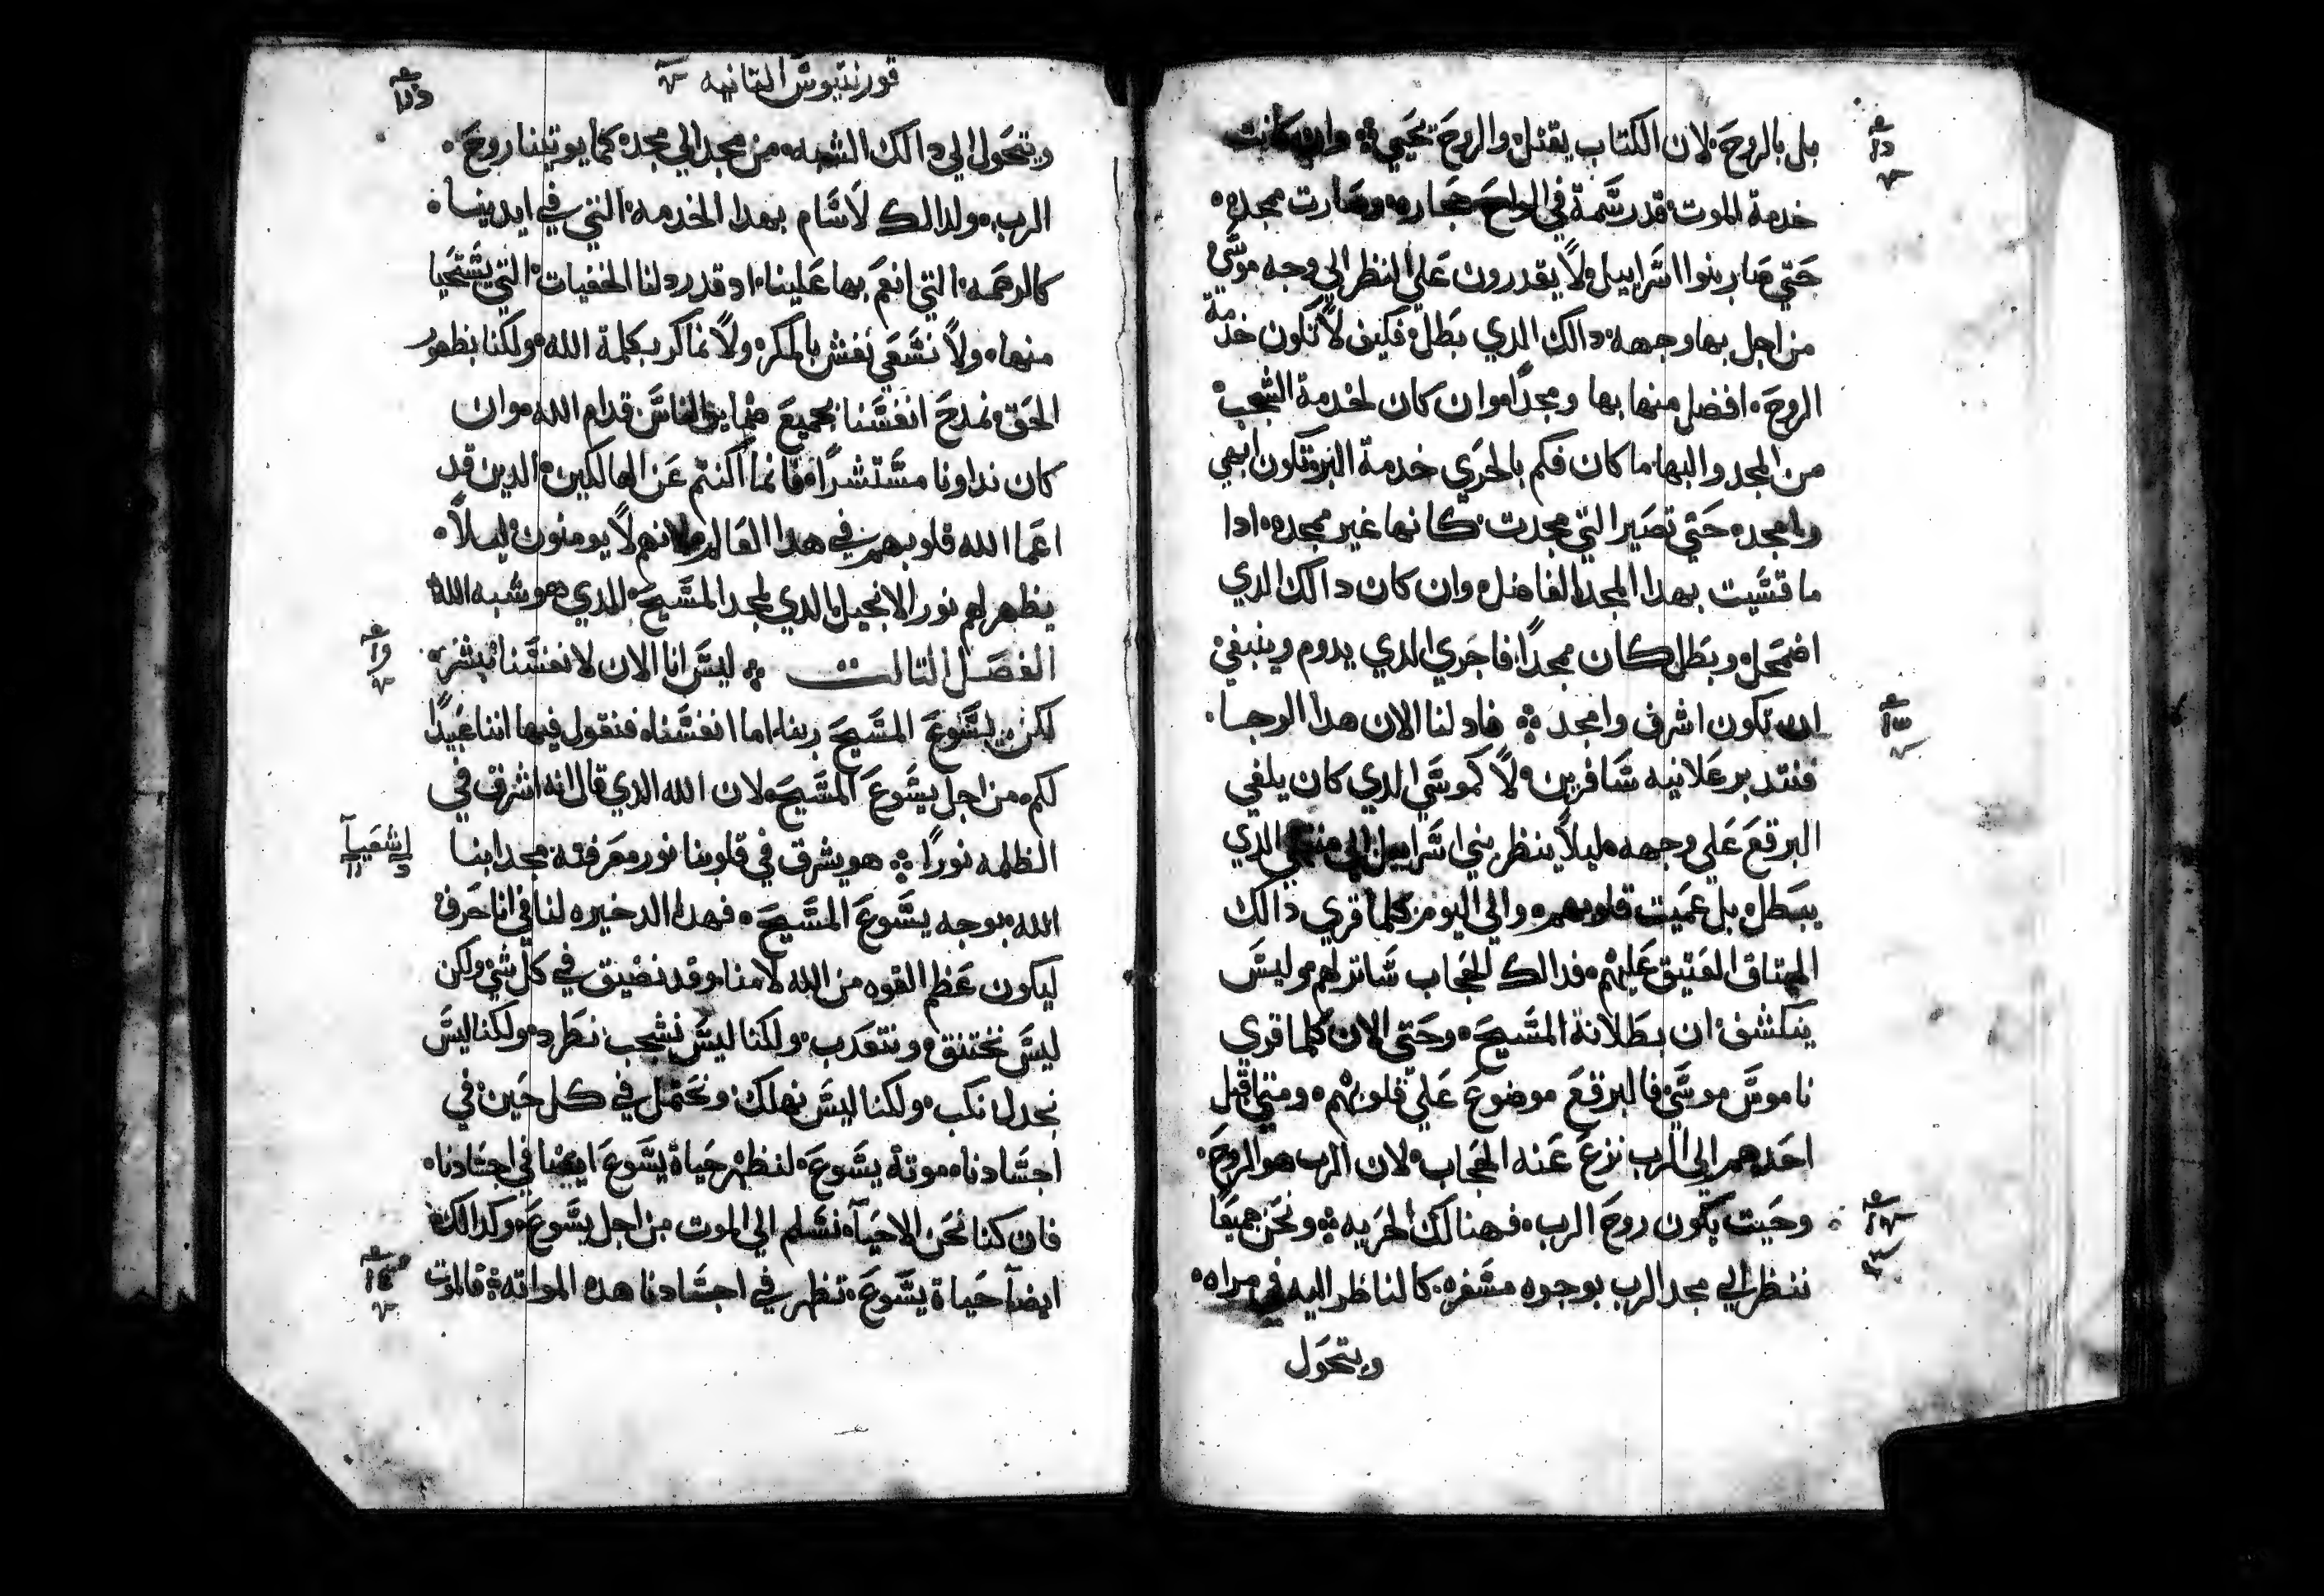 بل بالروح لان الكتاب يقتل والروح تحيي وان كانت
خدمة الموت قد رسمة في الواح حجاره وصارت بمجده
حتي صار بنوا اسراييل لا يقدرون علي النظر الي وجه موسي
من اجل بها وجهه دالك الدي بطل فكيف لا تكون خدمة
الروح افضل منها بها ومجدا وان كان لخدمة الشجب
من المجد والبها ما كان فكم بالحري خدمة البر وتكون ابهي
وامجده حتي تصير التي مجدت كانها غير ممجده ادا
ما قسيت بهدا المجد الفاضل وان كان دالك الدي
اضمحل وبطل كان مجدا فاحري الدي يدوم وينبغي
ان تكون اشرف وامجد فاد لنا الان هدا الرجا
فنتدبر علانيه سافرين لا كموسي الدي كان يلقي
البرقع علي وجهه ليلا ينظر بني اسراييل الي منتهي الدي
يبطل بل عميت قلوبهم والي اليوم كلما قري دالك
الميتاق العتيق عليهم فدالك الحجاب ساتر لهم وليس
ينكشف ان بطلانة المسيح وحتي الان كلما قري
ناموس موسي فالبرقع موضوع علي قلوبهم ومتي اقبل
احدهم الي الرب نزع عنه الحجاب لان الرب هو الروح
وحيت يكون روح الرب فهنالك الحريه ونحن جميعا
ننظر الي مجد الرب بوجوه مسفره كالناظر اليه في مراه
ويتحول
قورنتيوس التانيه
ويتحول الي دالك الشبه من مجد الي مجد كما يوتينا روح
الرب ولدالك لا سام بهدا الخدمه التي في ايدينا
كالرحمه التي انعم بها علينا اد قد ردلنا الخفيات التي يستحيا
منها ولا نسعي نفس بالمكر ولا نماكر بكلمة الله ولكنا بظهور
الحق نمدح انفسنا بجميع الناس قدام الله وان
كان نداونا مستترا فانما اكتتم عن الهالكين الدين قد
اعما الله قلوبهم في هدا العالم لانهم لا يومنون ليلا
يظهر لهم نور الانجيل الدي لمجد المسيح الدي هو شبه الله
الفصل التالت ليس انا الان لانفسنا نبشر
لكن يسوع المسيح ربنا اما انفسنا فنقول فيها اننا عبيدا
لكم من اجل يسوع المسيح لان الله الدي قال انه اشرق في
الظلمه نورا هو يشرق في قلوبنا نور معرفته مجد ابنا
اشعيا
الله بوجه يسوع المسيح فهدا الدخيره لنا في انا خرف
ليكون عظم القوه من الله لا منا وقد نضيق في كل شي ولكن
ليس نختنق ونتعدب ولكنا ليس نشجب نطرد ولكنا ليس
نخدل نكب ولكنا ليس نهلك ونحتمل في كل حين في
اجسادنا موتة يسوع لتظهر حياة يسوع ايضا في اجسادنا
فان كنا نحن الاحيا نسلم الي الموت من اجل يسوع وكدالك
ايضا حياة يسوع تظهر في اجسادنا هده المواته فالموت